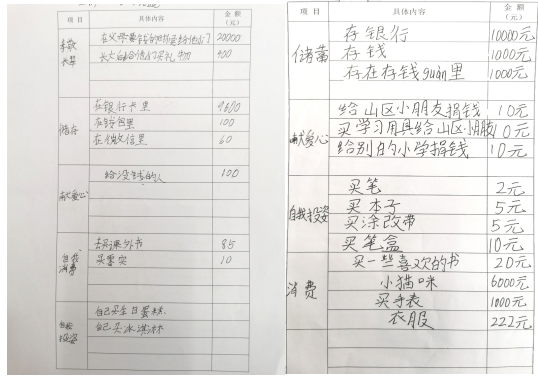 项目 具体内容 金额（元）
孝敬长辈
20000
长大后给他们买礼物 400
储存
在银行卡里 9600
在钱包里 100
在微信里 60
献爱心
给没钱的人 100
自我消费
去别课外书 85
买零食 10
自我投资
自己买生日蛋糕
自己买冰淇淋
项目 具体内容 金额（元）
储蓄
存银行 10000元
存钱 1000元
存在存钱guàn里 1000元
献爱心
给山区小朋友捐钱 10元
买学习用具给山区小朋友 10元
给别的小学捐钱 10元
自我投资
买笔 2元
买本子 5元
买涂改带 5元
买笔盒 10元
消费
买一些喜欢的书 20元
小猫咪 6000元
买手表 1000元
衣服 222元